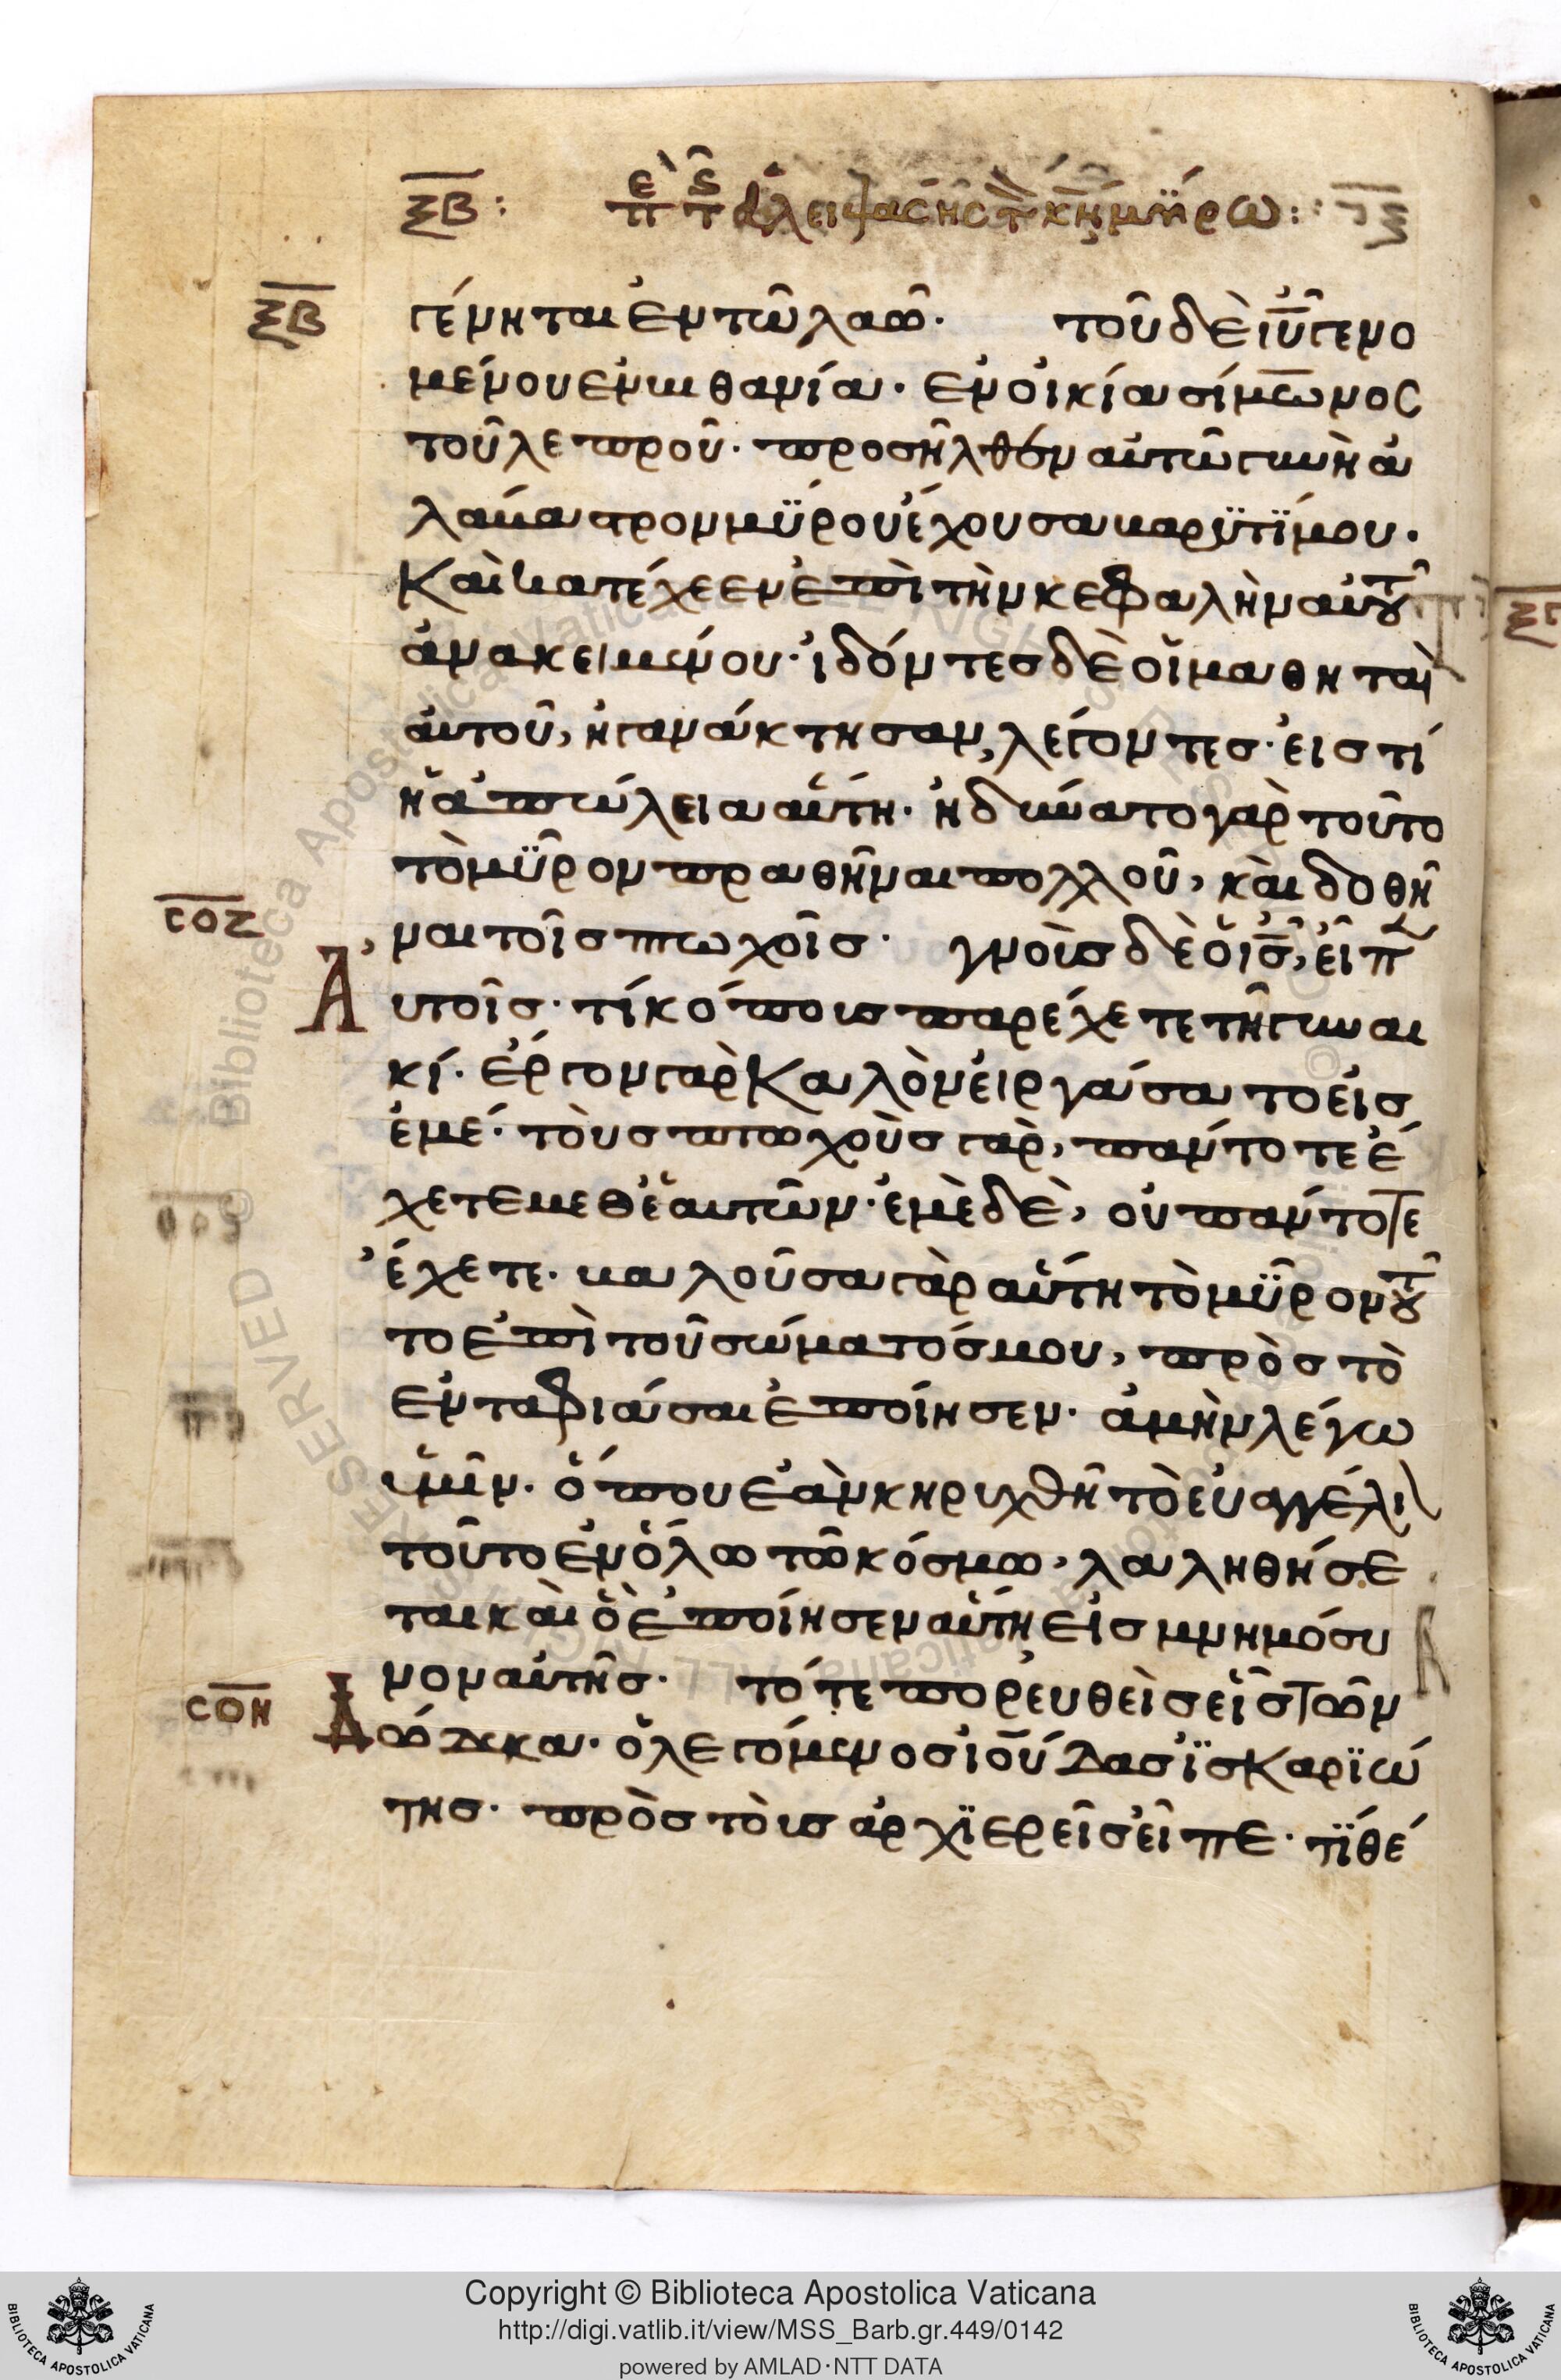 ξβ: πε τς ἀλειψάσης τ κν μύρω:
ξβ γένηται ἐν τῶ λαῶ. τοῦ δὲ ιῦ γενο
μένου ἐν βηθανία. ἐν οἰκία σίμωνος
τοῦ λεπροῦ. προσῆλθεν αὐτῶ γυνὴ ἀ
λάβαστρον μΰρου ἔχουσα βαρϋτΐμου.
Καὶ κατέχεεν ἐπὶ τὴν κεφαλὴν αὐτοῦ
ἀνακειμένου. ἰδόντες δὲ οἱ μαθηταὶ
αὐτοῦ, ἠγανάκτησαν, λέγοντες. εἰς τί
ἡ ἀπώλεια αὕτη. ἠδύνατο γὰρ τοῦτο
τὸ μϋ̂ρον πραθῆναι πολλοῦ, καὶ δοθῆ
σοζ ναι τοῖς πτωχοῖς. γνοὺς δὲ ὁ ις, εἶπ
Αὐτοῖς. τί κόπους παρέχετε τῆ γυναι
κί. ἔργον γὰρ Καλὸν εἰργάσατο εἰς
ἐμέ. τοὺς πτωχοὺς γὰρ, πάντοτε ἔ
χετε μεθ ἑαυτῶν. ἐμὲ δὲ, οὐ πάντοτε
ἔχετε. βαλοῦσα γὰρ αὕτη τὸ μϋ̂ρον τοῦ
το ἐπὶ τοῦ σώματός μου, πρὸς τὸ
ἐνταφιάσαι ἐποίησεν. ἀμὴν λέγω
ὑμῖν. ὅπου ἐὰν κηρυχθῆ τὸ εὐαγγέλι
τοῦτο ἐν ὅλω τῶ κόσμω, λαληθήσε
ται καὶ ὃ ἐποίησεν αὕτη εἰς μνημόσυ
νον αὐτῆς. τότε πορευθεὶς εἷς τῶν
σοη Δώδεκα. ὁ λεγόμενος ἰούδας ἰ̈σΚαρϊώ
της. πρὸς τοὺς ἀρχϊερεῖς εἶπε. τΐ θέ
Copyright © Biblioteca Apostolica Vaticana
http://digi.vatlib.it/view/MSS_Barb.gr.449/0142
powered by AMLAD·NTT DATA